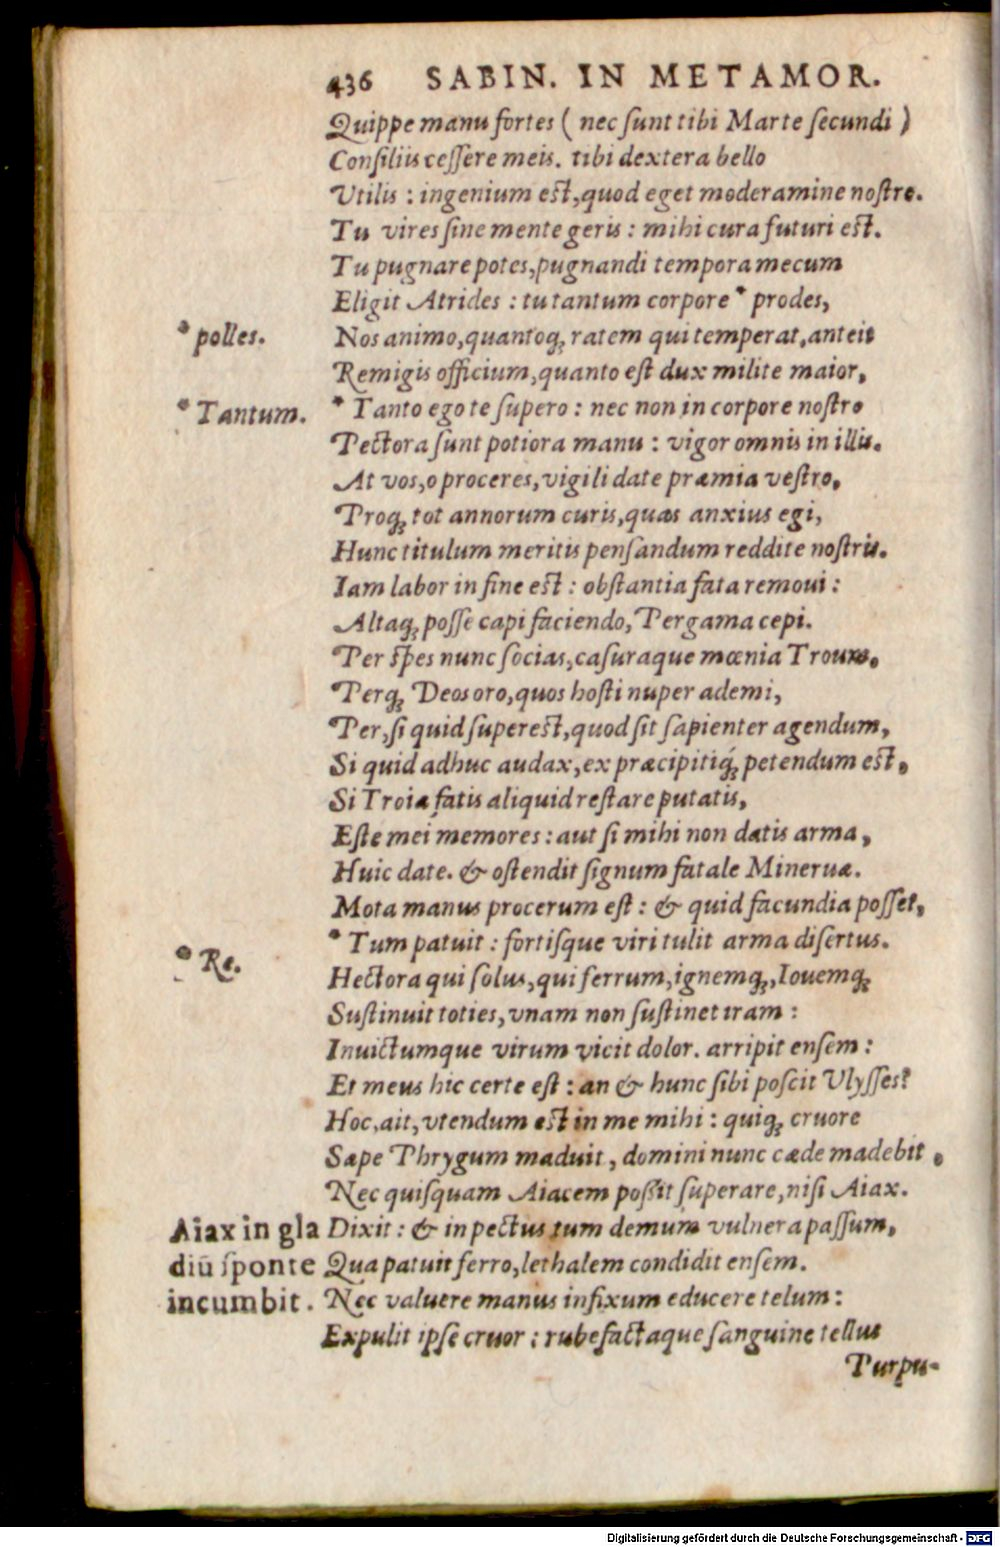 436 SABIN. IN METAMOR.
Quippe manu fortes ( nec sunt tibi Marte secundi )
Consiliis cessere meis. tibi dextera bello
Vtilis : ingenium est, quod eget moderamine nostro.
Tu vires sine mente geris : mihi cura futuri est.
Tu pugnare potes, pugnandi tempora mecum
Eligit Atrides : tu tantum corpore * prodes,
* polles.
Nos animo, quantoq; ratem qui temperat, anteit
Remigis officium, quanto est dux milite maior,
* Tantum.
* Tanto ego te supero : nec non in corpore nostro
Pectora sunt potiora manu : vigor omnis in illis.
At vos, o proceres, vigili date præmia vestro,
Proq; tot annorum curis, quas anxius egi,
Hunc titulum meritis pensandum reddite nostris.
Iam labor in fine est : obstantia fata remoui :
Altaq; posse capi faciendo, Pergama cepi.
Per spes nunc socias, casuraque mœnia Troum,
Perq; Deos oro, quos hosti nuper ademi,
Per, si quid superest, quod sit sapienter agendum,
Si quid adhuc audax, ex præcipitiq́; petendum est,
Si Troiæ fatis aliquid restare putatis,
Este mei memores : aut si mihi non datis arma,
Huic date. & ostendit signum fatale Mineruæ.
Mota manus procerum est : & quid facundia posset,
* Tum patuit : fortisque viri tulit arma disertus.
* Re.
Hectora qui solus, qui ferrum, ignemq;, Iouemq;
Sustinuit toties, vnam non sustinet iram :
Inuictumque virum vicit dolor. arripit ensem :
Et meus hic certe est : an & hunc sibi poscit Vlysses?
Hoc, ait, vtendum est in me mihi : quiq; cruore
Sæpe Phrygum maduit, domini nunc cæde madebit,
Nec quisquam Aiacem possit superare, nisi Aiax.
Aiax in gla
diū sponte
incumbit.
Dixit : & in pectus tum demum vulnera passum,
Qua patuit ferro, lethalem condidit ensem.
Nec valuere manus infixum educere telum :
Expulit ipse cruor : rubefactaque sanguine tellus
Purpu-
Digitalisierung gefördert durch die Deutsche Forschungsgemeinschaft - DFG